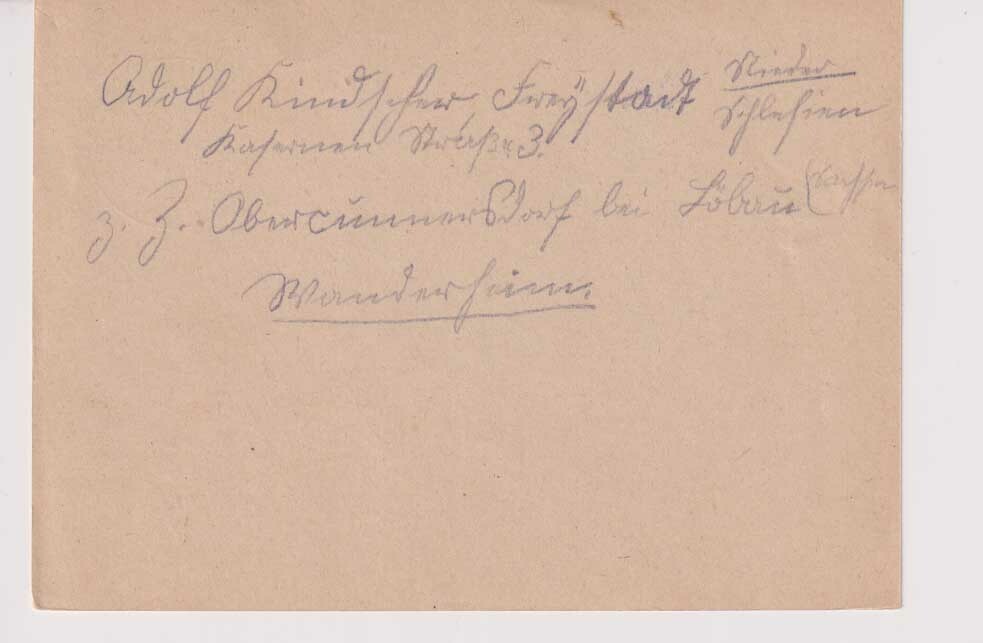 Adolf Kindscher, Freystadt Nieder
Schlesien
Kasernen Straße 3.
z. Z. Obercunnersdorf bei Löbau (Sachsen
Wanderheim.